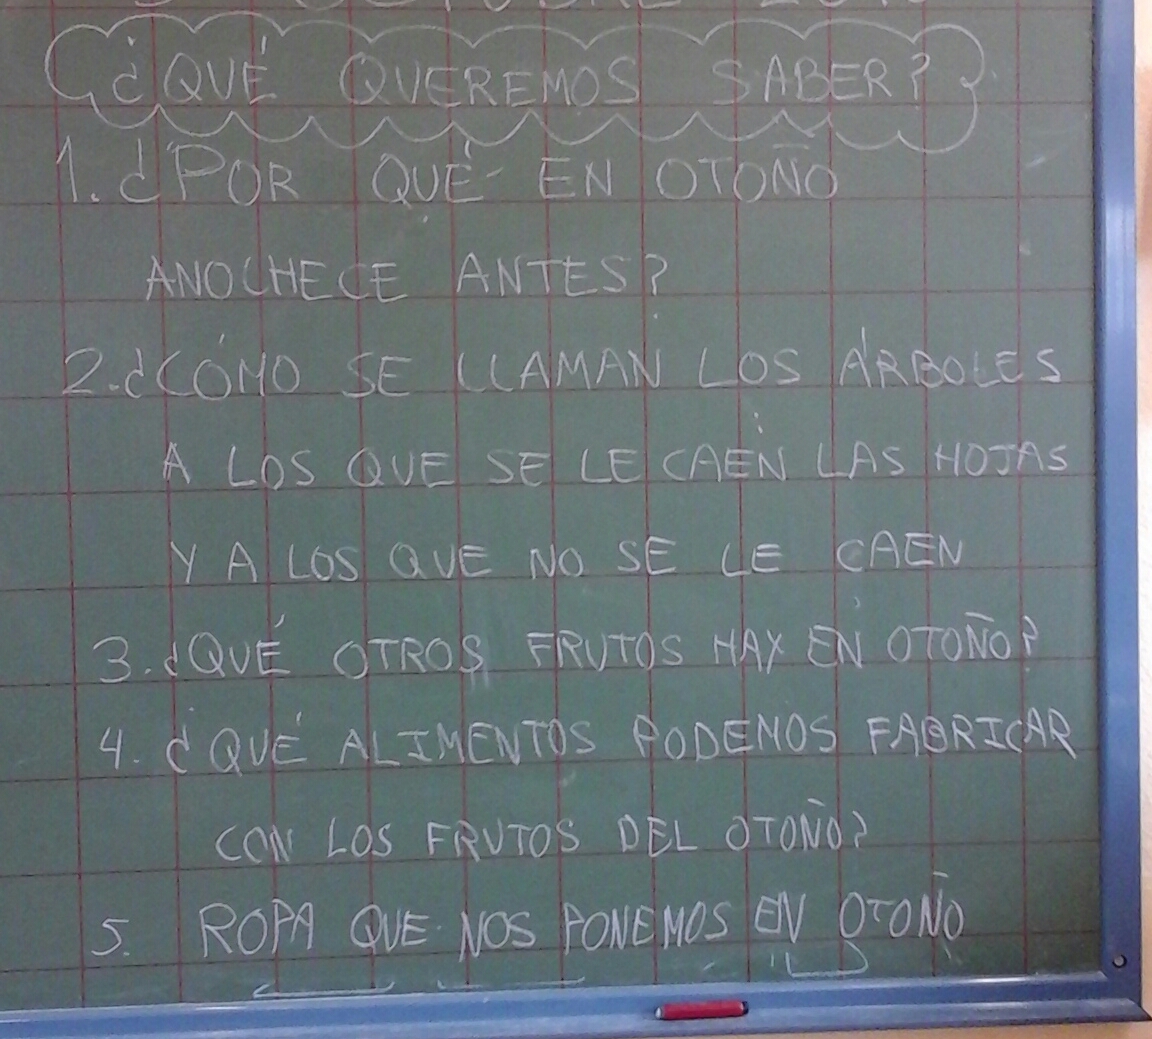 ¿QUÉ QUEREMOS SABER?
1. ¿POR QUÉ EN OTOÑO
ANOCHECE ANTES?
2. ¿CÓMO SE LLAMAN LOS ÁRBOLES
A LOS QUE SE LE CAEN LAS HOJAS
Y A LOS QUE NO SE LE CAEN
3. ¿QUÉ OTROS FRUTOS HAY EN OTOÑO?
4. ¿QUÉ ALIMENTOS PODEMOS FABRICAR
CON LOS FRUTOS DEL OTOÑO?
5. ROPA QUE NOS PONEMOS EN OTOÑO